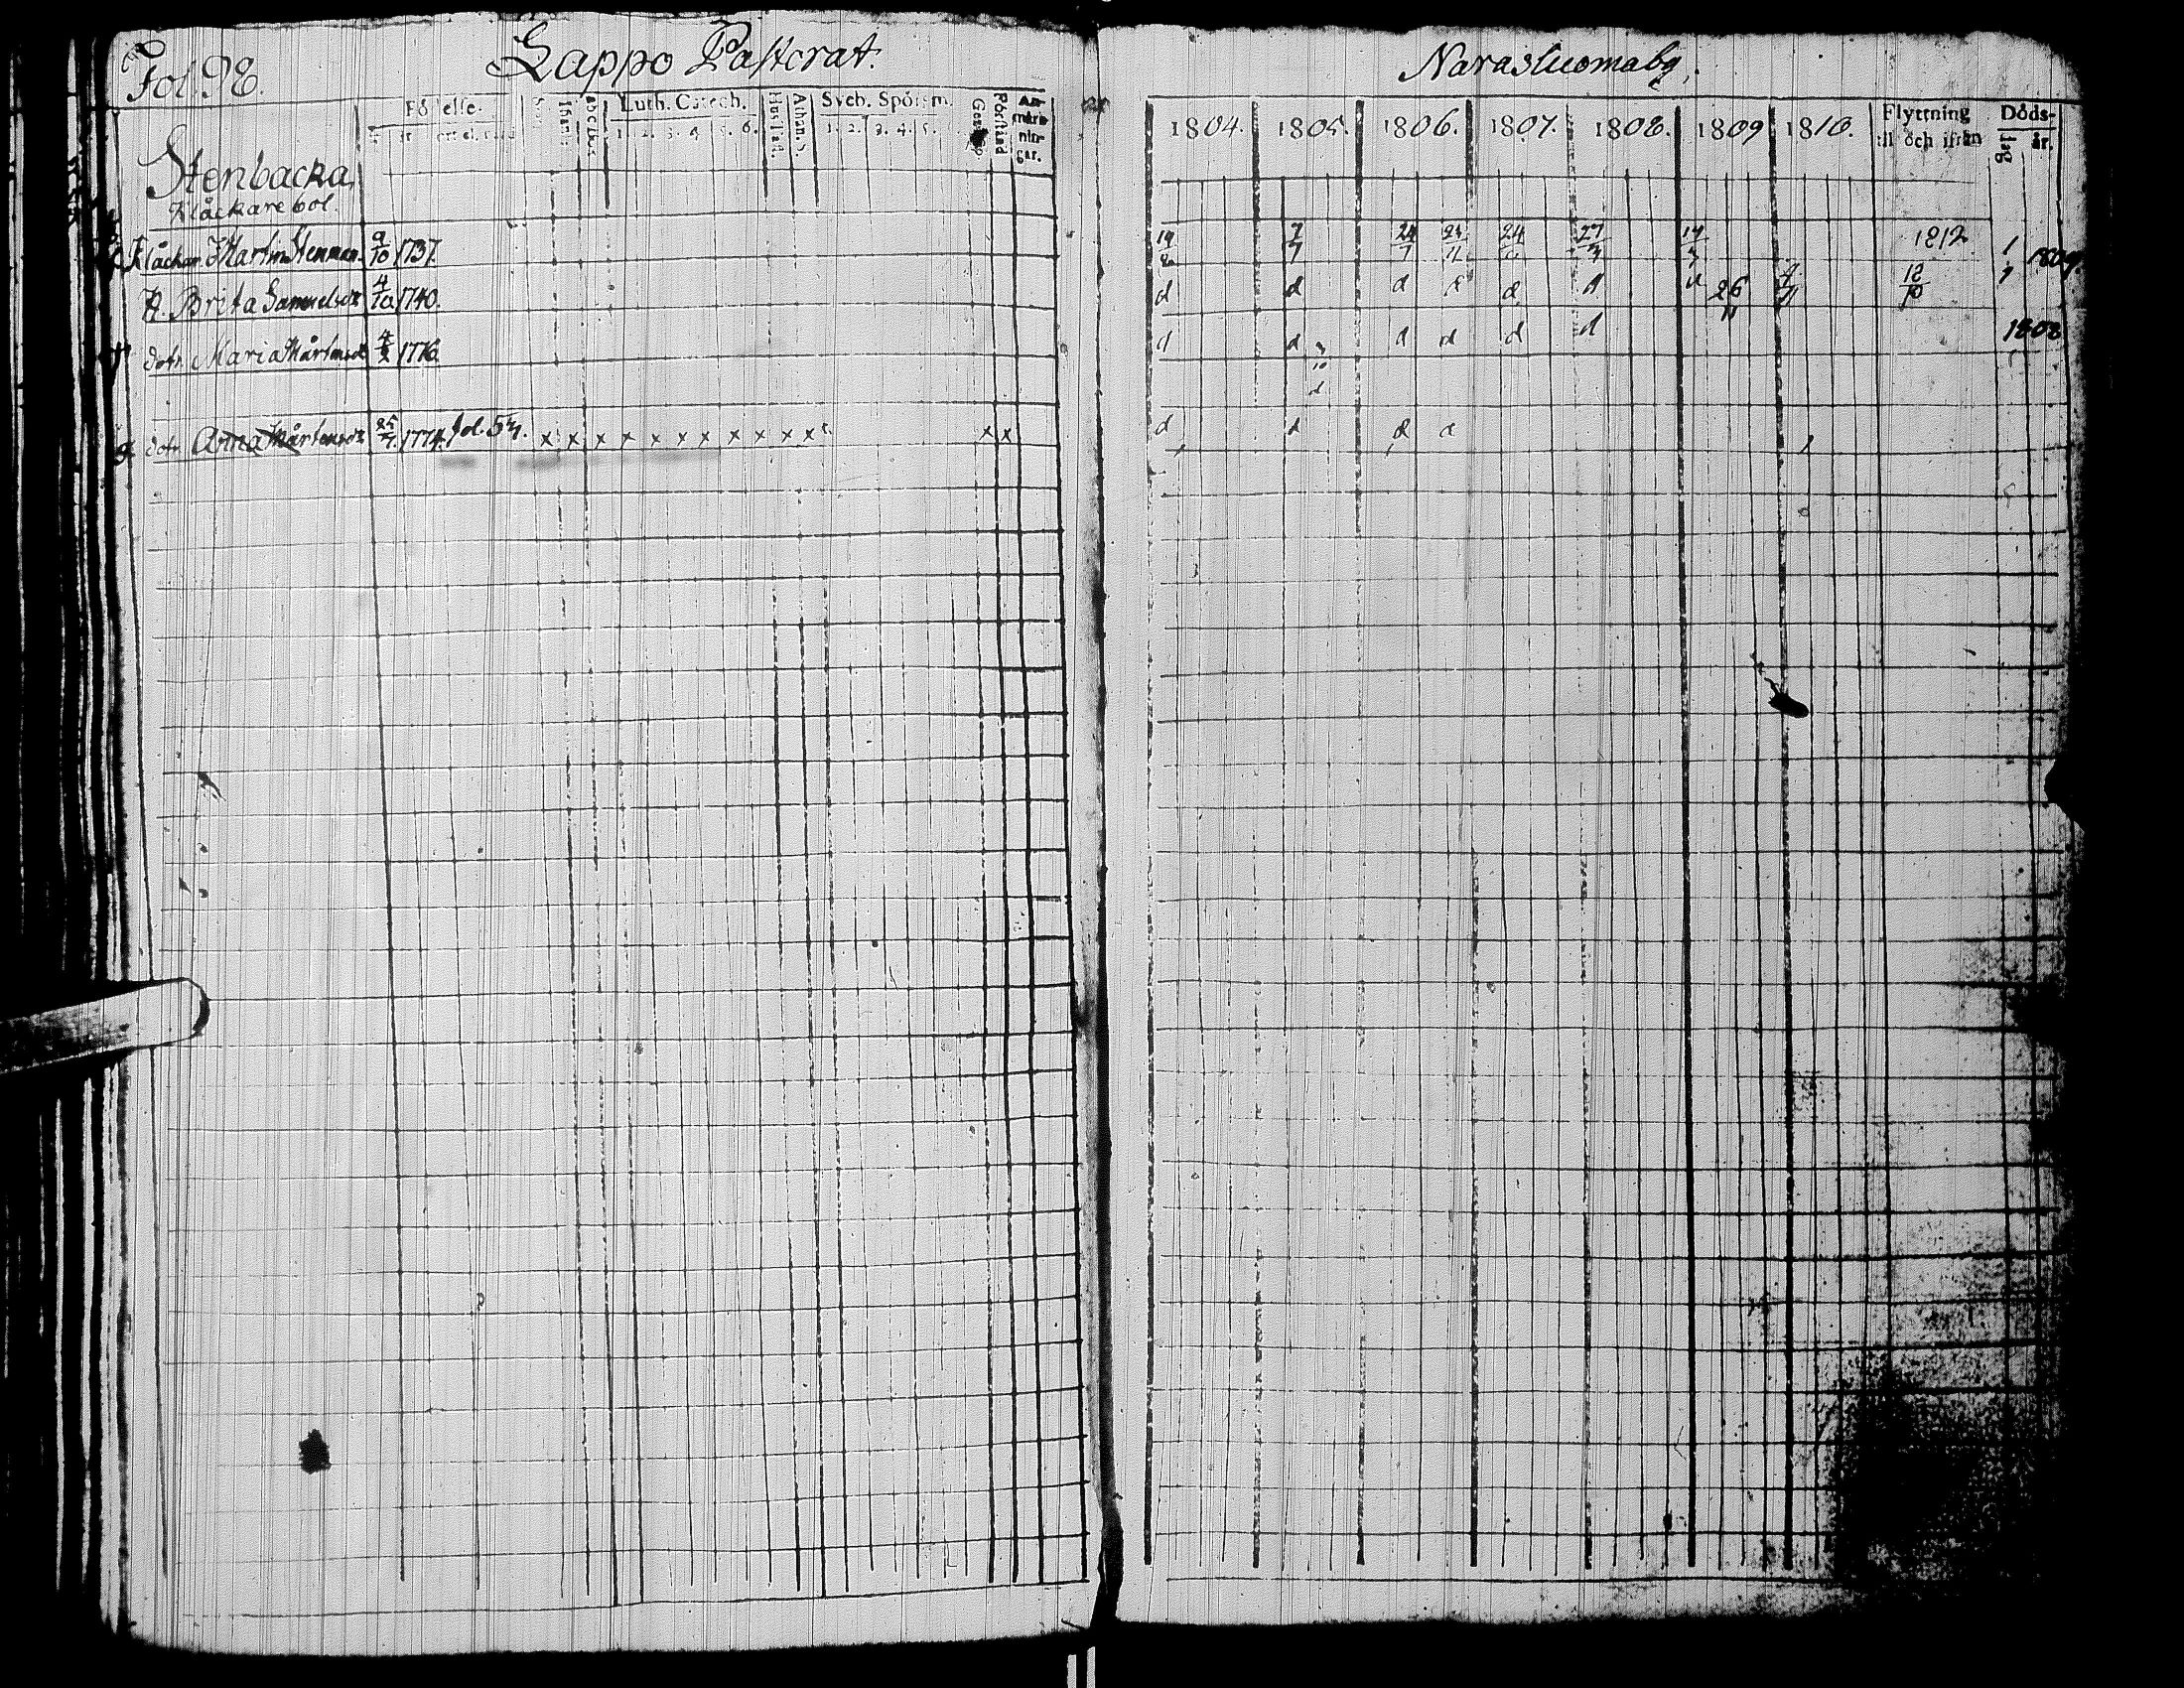 Fol. 98.
Lappo Pastorat.
Narasluomaby.
Födelse.
Luth. Catech.
1. 2. 3. 4. 5. 6.
Hustafl.
Athan. S.
Sveb. Spörsm.
1. 2. 3. 4. 5.
Förstånd
An-
märk-
nin-
gar.
1804. 1805. 1806. 1807. 1808. 1809 1810.
Flyttning
til och ifrån
Döds-
dag år.
Stenbacka
Klåckare bol.
Klåckar. Martin Stenman 9/10 1737. 19/8 7/7 24/7 24 27/3 14 1812 1 1809
H. Brita Samuelsdr 4/10 1740. d d d d d d d 26/11 12/10
dotr. Maria Mårtensdr 1776 d d d d d d 1808
3/10
d
dotr. Anna Mårtensdr 25/7. 1774. fol. 57. x x x x x x x x x x x x x d d d d